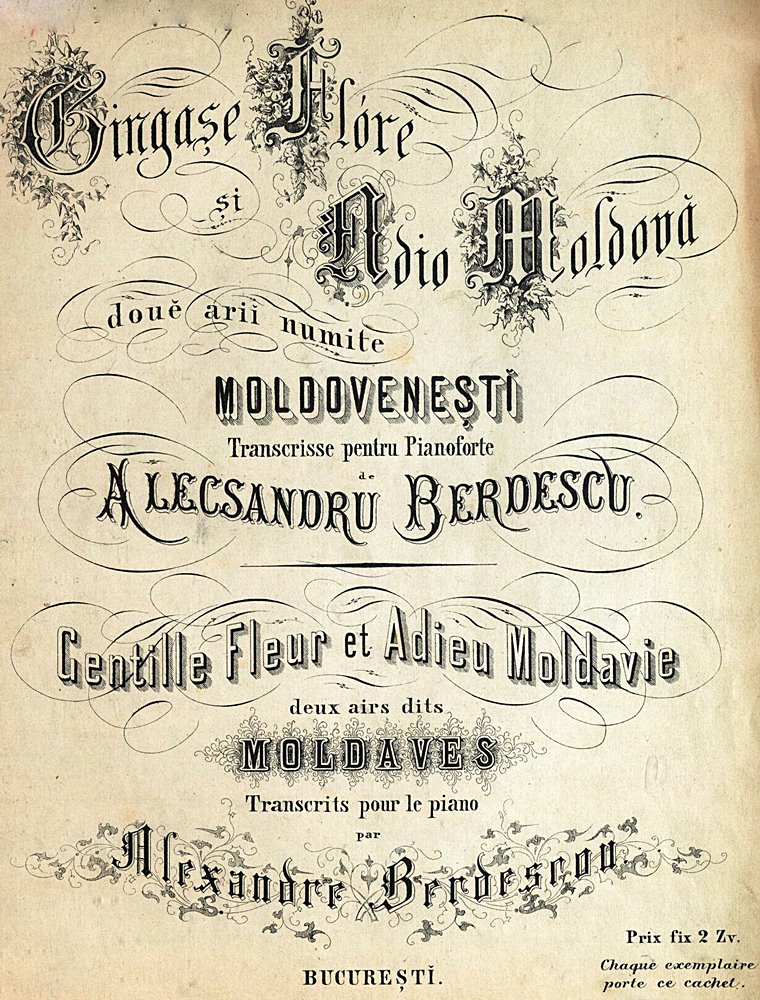 Gingașe Flóre
și
Adio Moldovă
douĕ ariĭ numite
MOLDOVENEȘTĬ
Transcrisse pentru Pianoforte
de
ALECSANDRU BERDESCU.
Gentille Fleur et Adieu Moldavie
deux airs dits
MOLDAVES
Transcrits pour le piano
par
Alexandre Berdescou.
Prix fix 2 Zv.
Chaque exemplaire
porte ce cachet.
BUCUREȘTĬ.